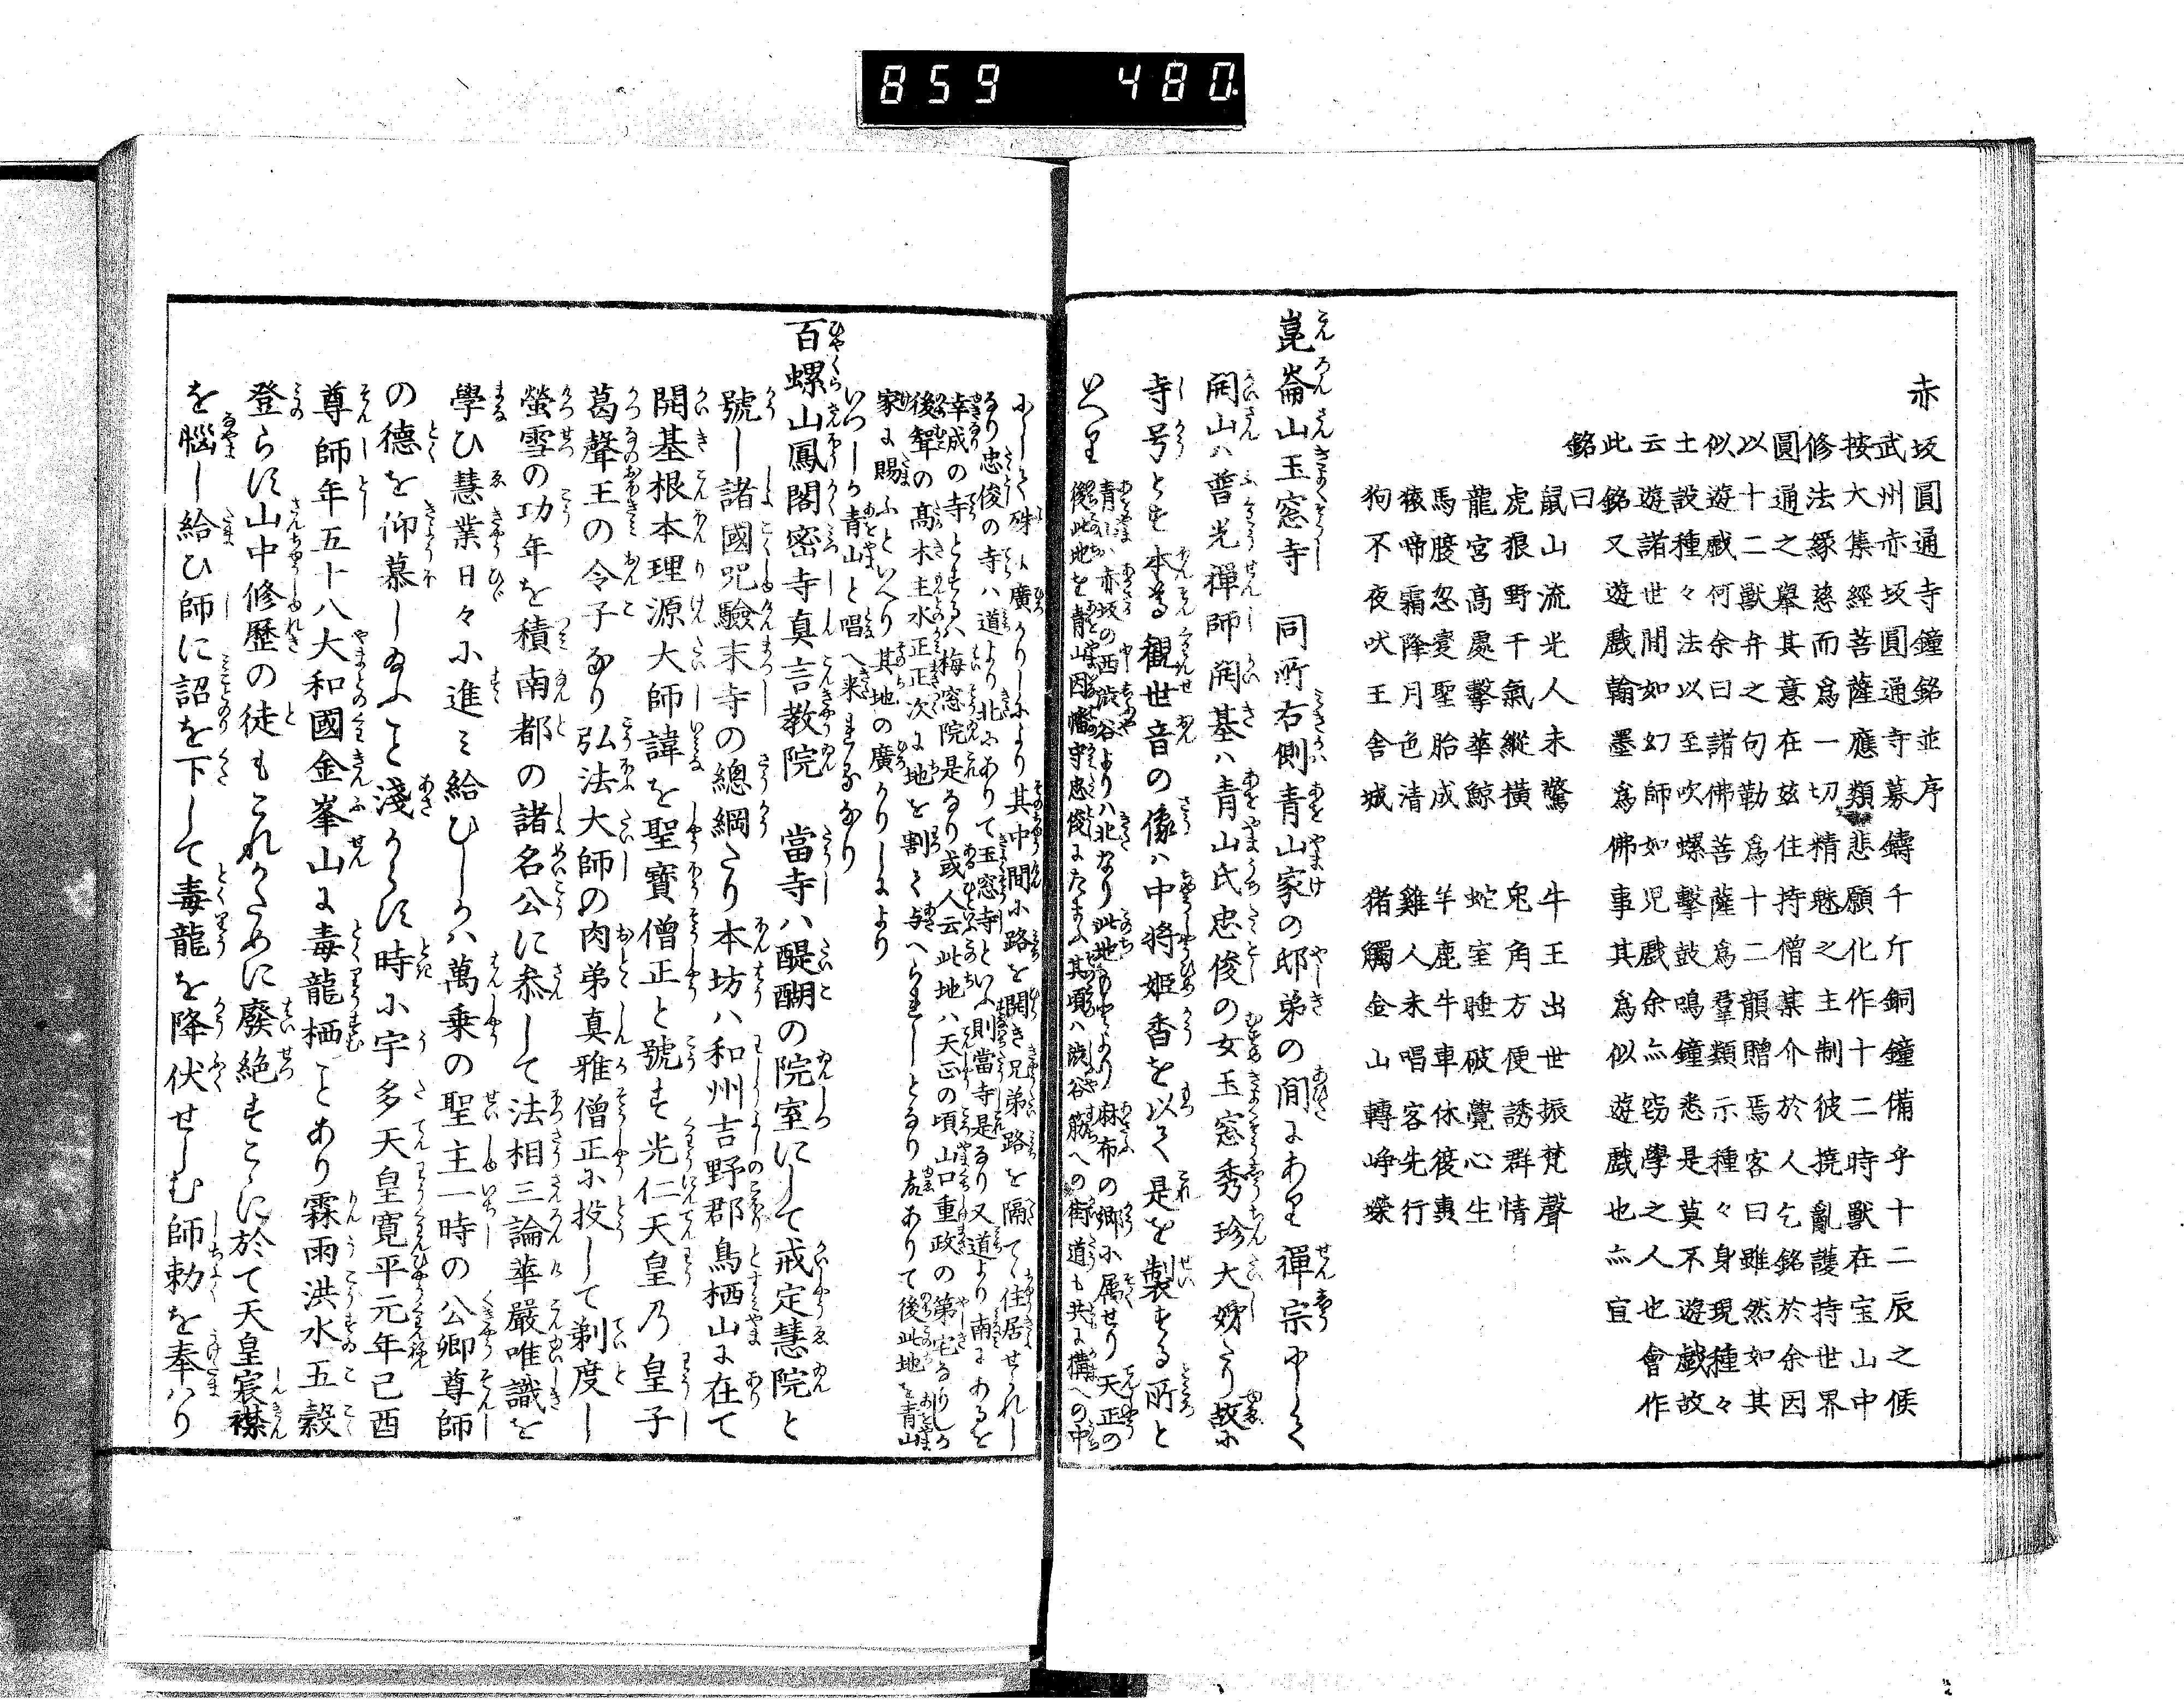 859 480
赤坂圓通寺鐘銘並序
武州赤坂圓通寺募鑄千斤銅鐘備乎十二辰之候
按大集經菩薩應類悲願化作十二時獸在宝山中
修法緣慈而爲一切精魅之主制彼撓亂護持世界
圓通之擧其意在玆住持僧某介於人乞銘於余因
以十二獸弁之句勒爲十二韻贈焉客曰雖然如其
似遊戲何余曰諸佛善薩爲羣類示種々身現種々
土設種々法以至吹螺擊鼓鳴鐘悉是莫不遊戲故
云遊諸世間如幻師如児戲余亦竊學之人也會作
此銘又遊戲翰墨爲佛事其爲似遊戲也亦宜
銘曰
鼠山流光人未驚　牛王出世振梵聲
虎狠野干氣縱橫　兎角方便誘群情
龍宮高處擊華鯨　蛇室睡破覺心生
馬腹忽褰聖胎成　羊鹿牛車休後輿
猿啼霜降月色清　雞人未唱客先行
狗不夜吠王舎城　猪觸金山轉崢嶸
崑崙山玉窓寺　同所右側青山家の邸第の間にあり禪宗にして
開山ハ普光禪師開基ハ青山氏忠俊の女玉窓秀珍大姉たり故に
寺号とす本尊観世音の像ハ中将姫香を以て是を製する所と
いへり
青山ハ赤坂の西渋谷よりハ北なり此地もとより麻布の郷に属せり天正の
後此地を青山因幡守忠俊にたまふ其頃ハ渋谷筋への街道も共に構への中
にして殊に廣かりしにより其中間に路を開き兄弟路を隔てゝ住居せられし
なり忠俊の寺ハ道より北にありて玉窓寺といふ則當寺是なり又道より南にあるを
幸成の寺とするハ梅窓院是なり或人云此地ハ天正の頃山口重政の第宅なりしか
後聟の高木主水正正次に地を割て与へられしとなり故ありて後此地を青山
家に賜ふといへり其地の廣かりしにより
いつしか青山と唱へ来まるなり
百螺山鳳閣密寺真言教院　當寺ハ醍醐の院室にして戒定慧院と
號し諸國咒驗末寺の總綱たり本坊ハ和州吉野郡鳥栖山に在て
開基根本理源大師諱を聖寶僧正と號す光仁天皇乃皇子
葛聲王の令子なり弘法大師の肉弟真雅僧正に投して剃度し
螢雪の功年を積南都の諸名公に叅して法相三論華嚴唯識を
學ひ慧業日々に進ミ給ひしかハ萬乗の聖主一時の公卿尊師
の德を仰慕し給ふこと淺からす時に宇多天皇寛平元年己酉
尊師年五十八大和國金峯山に毒龍栖ことあり霖雨洪水五穀
登らす山中修歷の徒もこれかために廢絶すこゝに於て天皇宸襟
を腦し給ひ師に詔を下して毒龍を降伏せしむ師勅を奉ハり